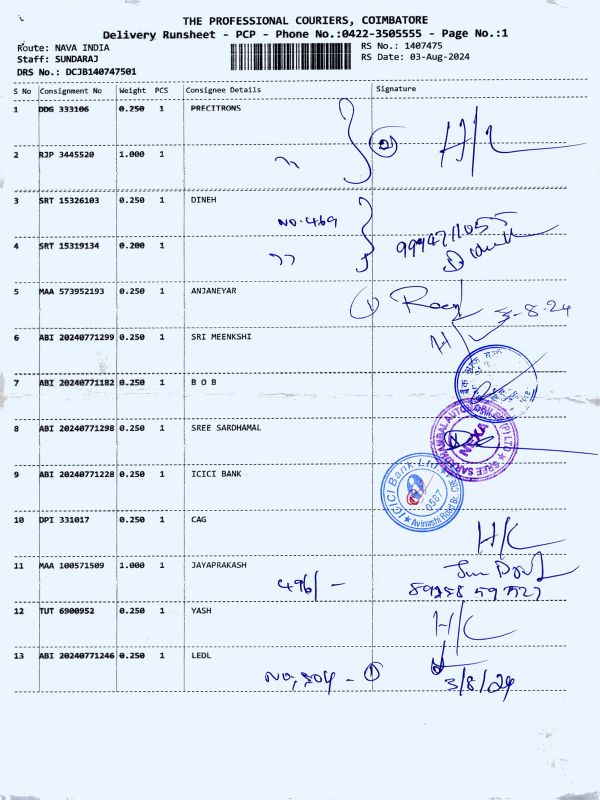 THE PROFESSIONAL COURIERS, COIMBATORE
Delivery Runsheet - PCP - Phone No.:0422-3505555 - Page No.:1
Route: NAVA INDIA
Staff: SUNDARAJ
DRS No.: DCJB140747501
RS No.: 1407475
RS Date: 03-Aug-2024
S No Consignment No Weight PCS Consignee Details Signature
1 DDG 333106 0.250 1 PRECITRONS
H/C
2 RJP 3445520 1.000 1 "
3 SRT 15326103 0.250 1 DINEH
NO. 469
4 SRT 15319134 0.200 1 "
5 MAA 573952193 0.250 1 ANJANEYAR ①
3-8-24
6 ABI 20240771299 0.250 1 SRI MEENKSHI H/
7 ABI 20240771182 0.250 1 B O B
8 ABI 20240771298 0.250 1 SREE SARDHAMAL
SREE SARADHAMBAL AUTO (P) LTD NEXA
9 ABI 20240771228 0.250 1 ICICI BANK
ICICI Bank Ltd. 0587 Avinashi Road Br. CBE
10 DPI 331017 0.250 1 CAG H/C
11 MAA 100571509 1.000 1 JAYAPRAKASH
496/-
12 TUT 6900952 0.250 1 YASH H/C
13 ABI 20240771246 0.250 1 LEDL
NO, 504 - ① 3/8/24